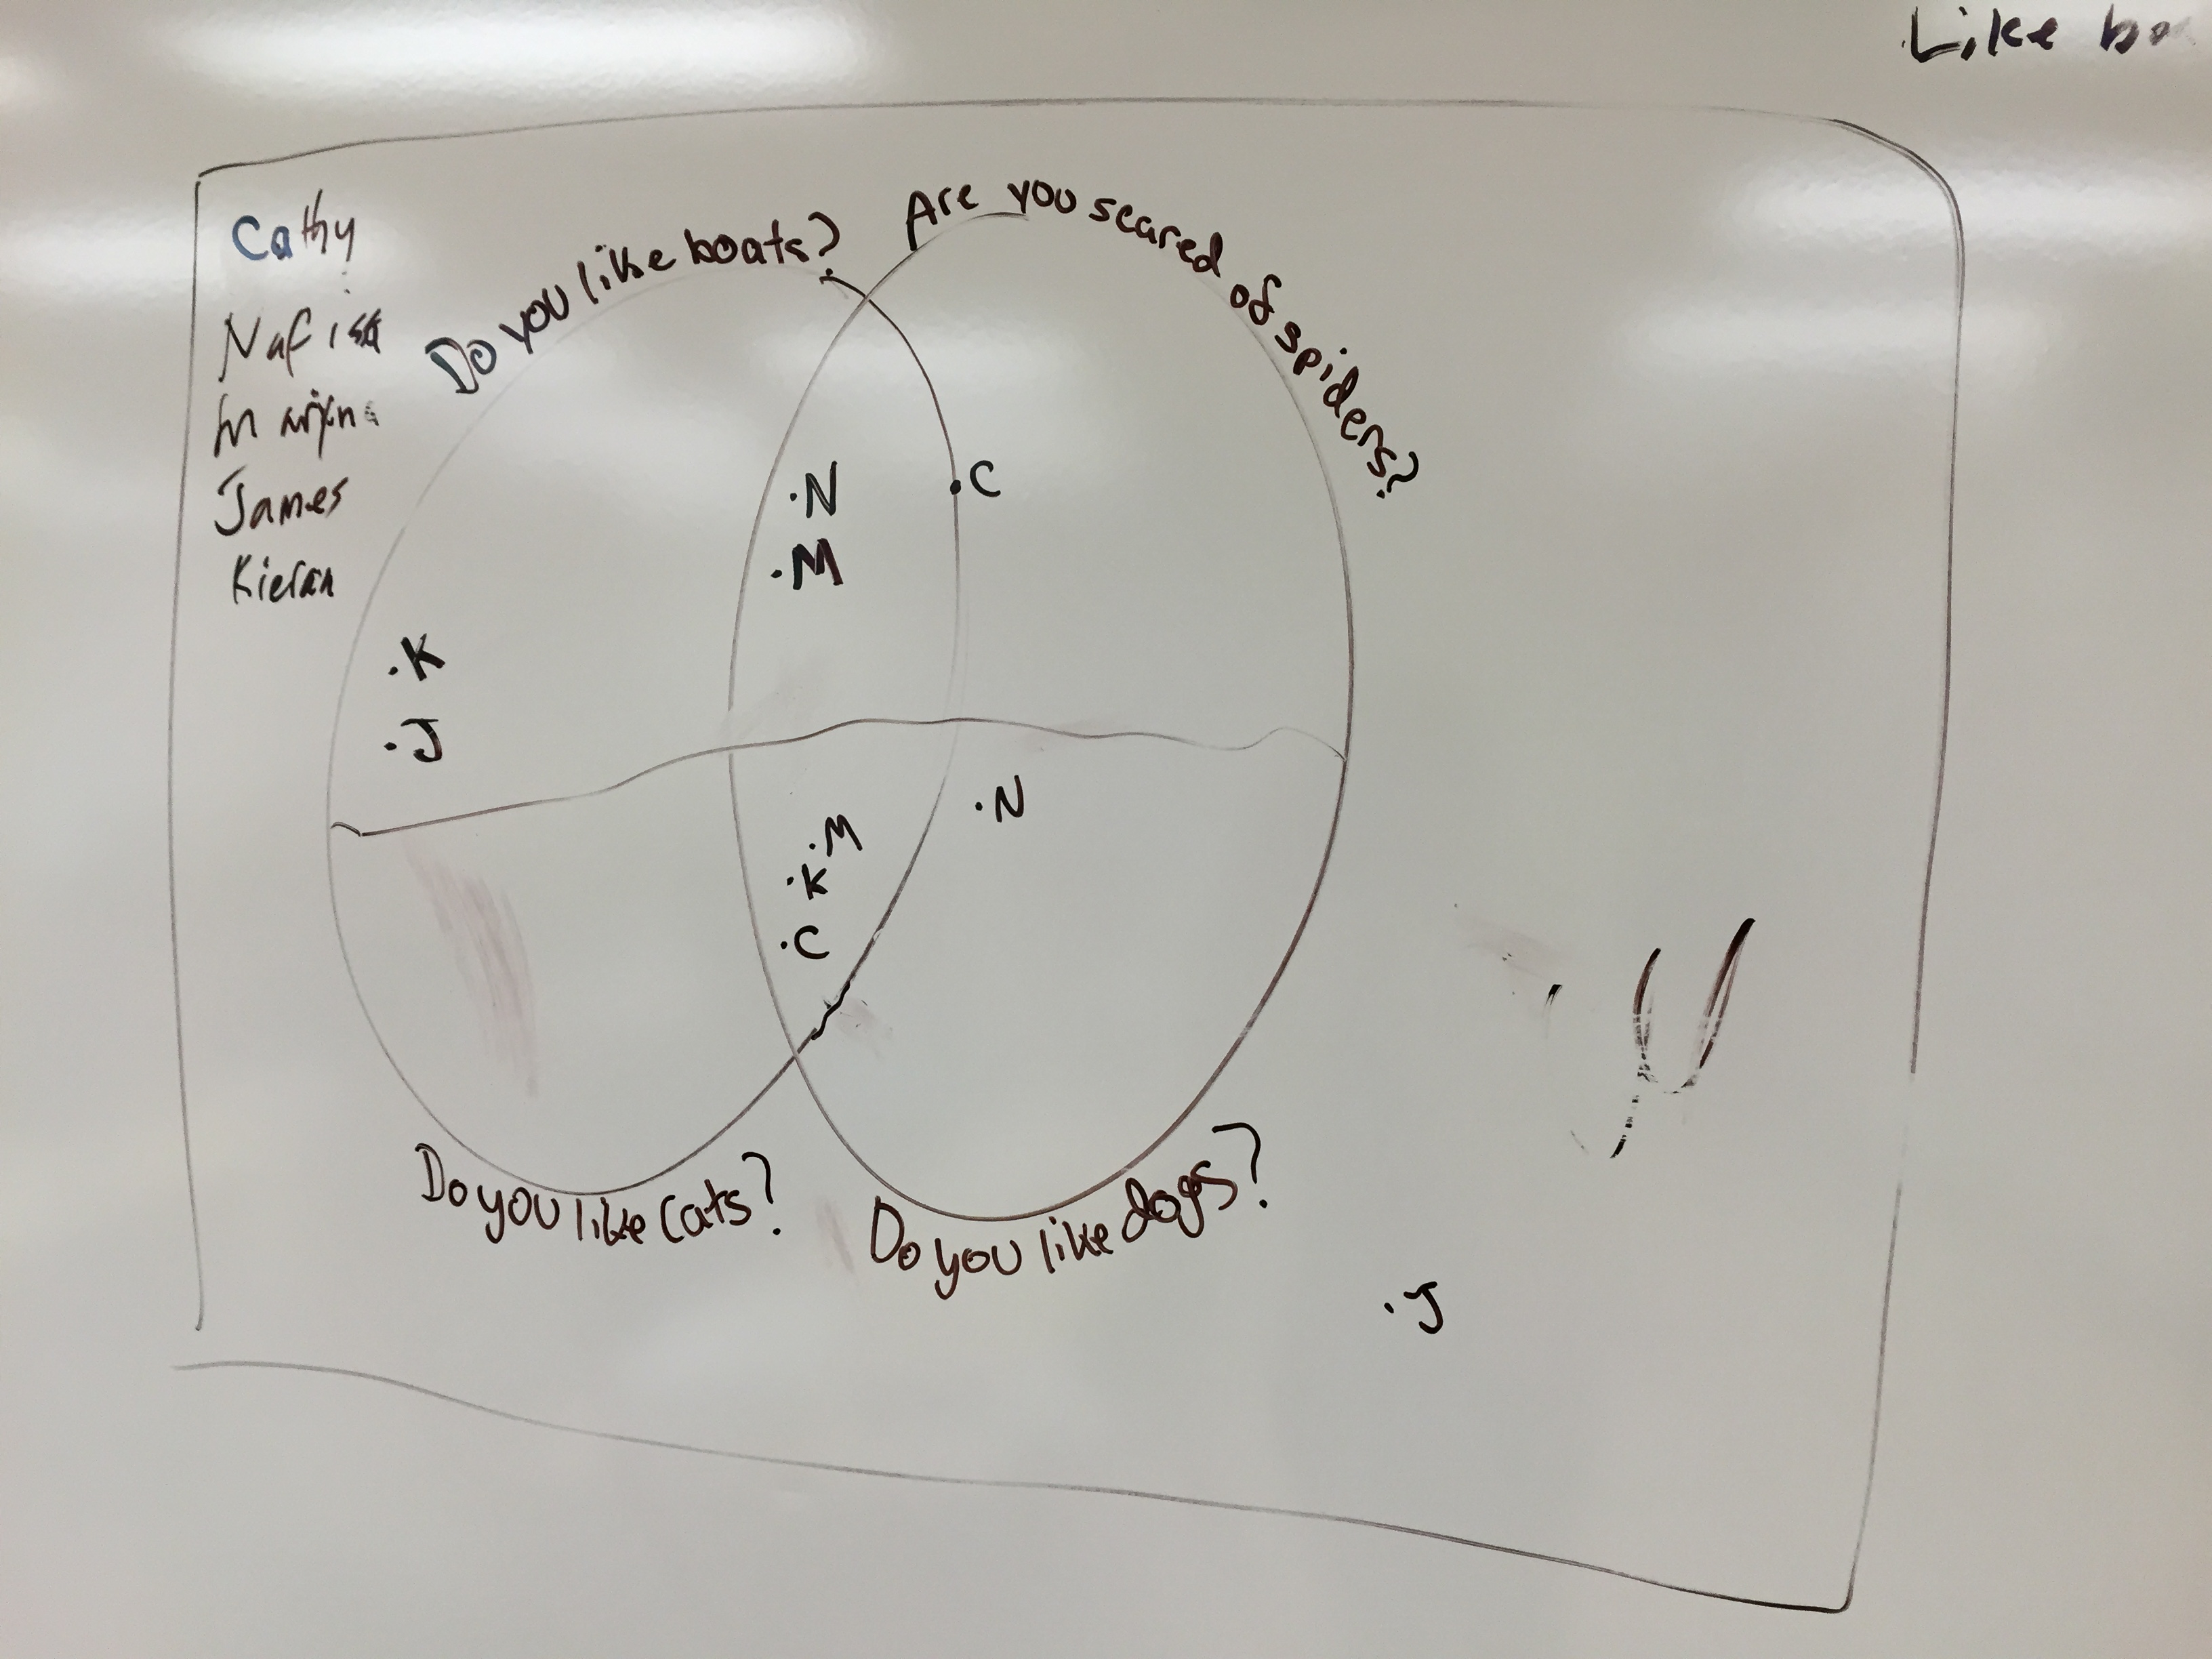 Like
Cathy
Nafisa
James
Kieran
Do you like boats?
Are you scared of spiders?
.N
.M
.C
.K
.J
.N
.M
.K
.C
Do you like cats?
Do you like dogs?
.J